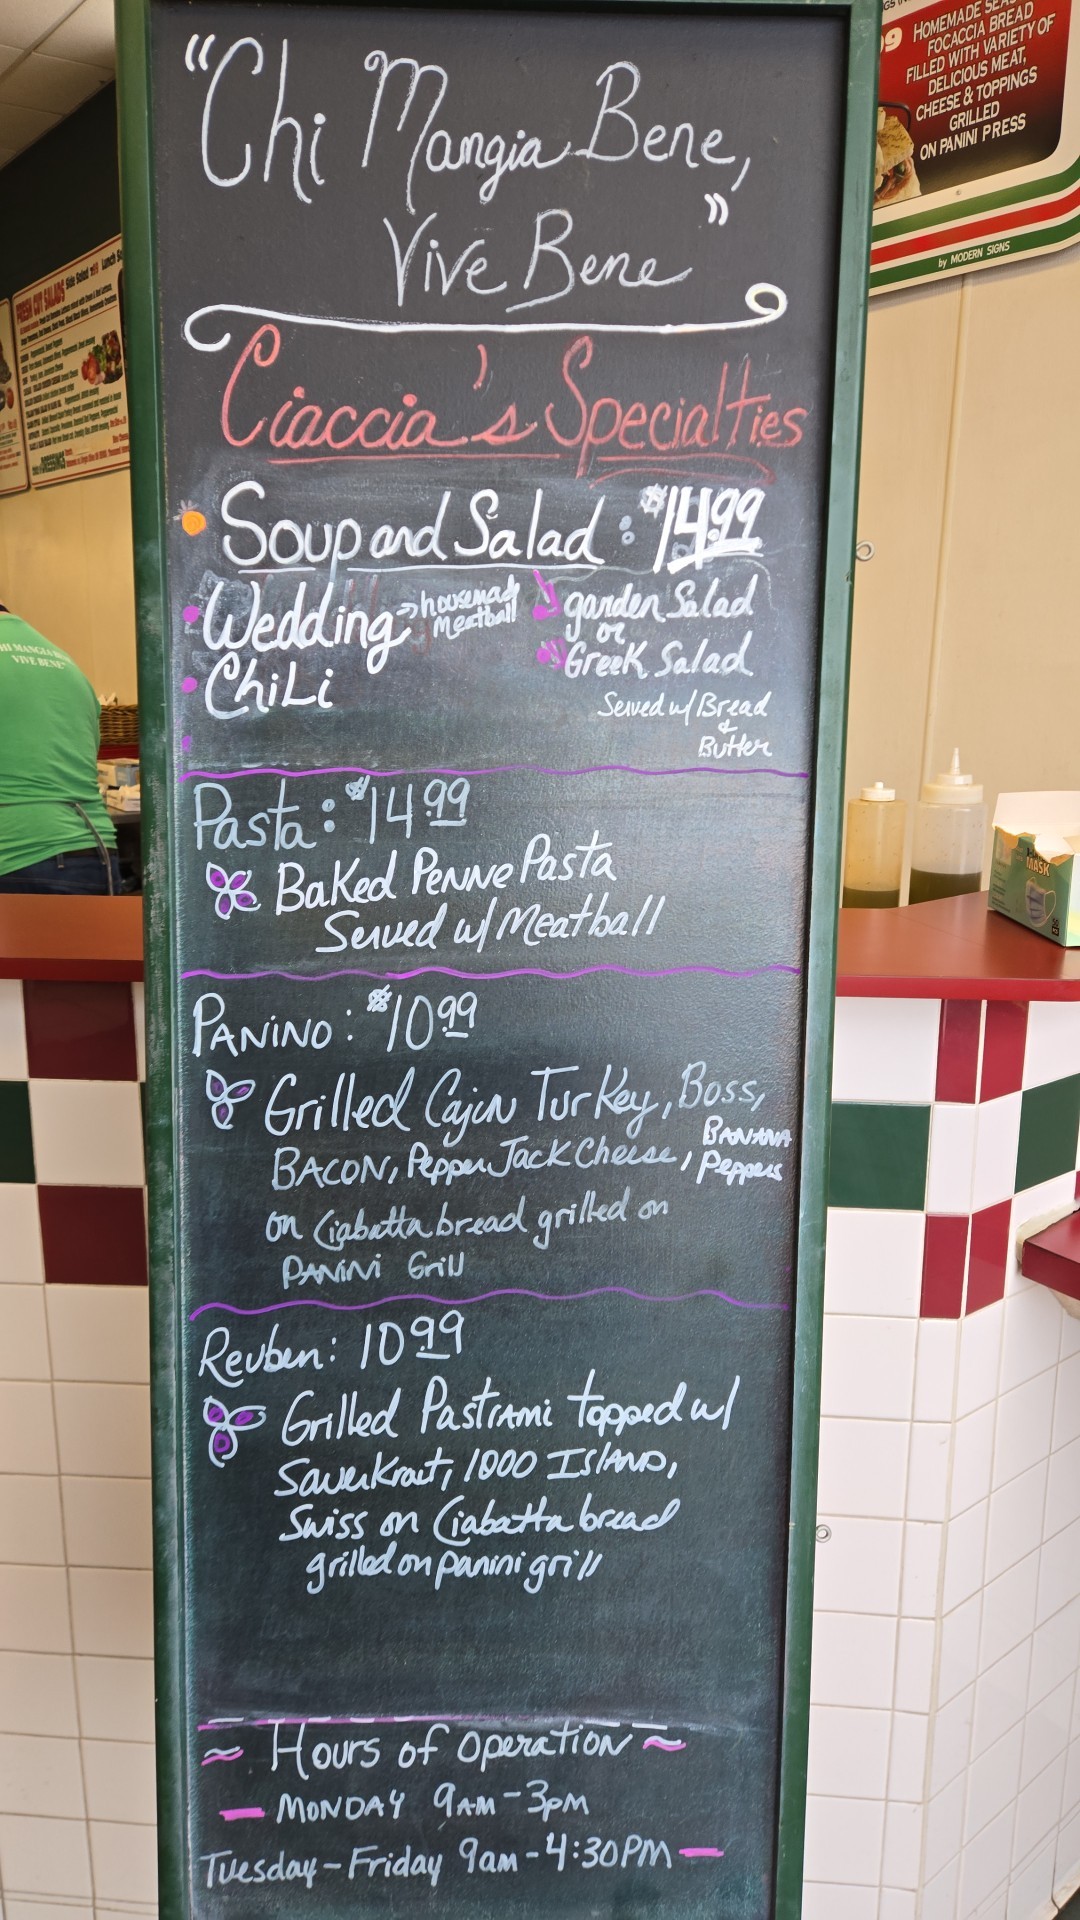 "Chi Mangia Bene,
Vive Bene"
Ciaccia's Specialties
Soup and Salad: $14.99
Wedding → housemade Meatball
Chili
garden Salad
or
Greek Salad
Served w/ Bread
&
Butter
Pasta: $14.99
Baked Penne Pasta
Served w/ Meatball
PANINO: $10.99
Grilled Cajun Turkey, Boss,
BACON, Pepper Jack Cheese, BANANA Peppers
on Ciabatta bread grilled on
PANINI Grill
Reuben: 10.99
Grilled Pastrami topped w/
Sauerkraut, 1000 ISLAND,
Swiss on Ciabatta bread
grilled on panini grill
Hours of operation
MONDAY 9AM-3pM
Tuesday-Friday 9am-4:30PM
HOMEMADE
FOCACCIA BREAD
FILLED WITH VARIETY OF
DELICIOUS MEAT,
CHEESE & TOPPINGS
GRILLED
ON PANINI PRESS
by MODERN SIGNS
FRESH CUT SALADS Side Salad
VIVE BENE"
MASK